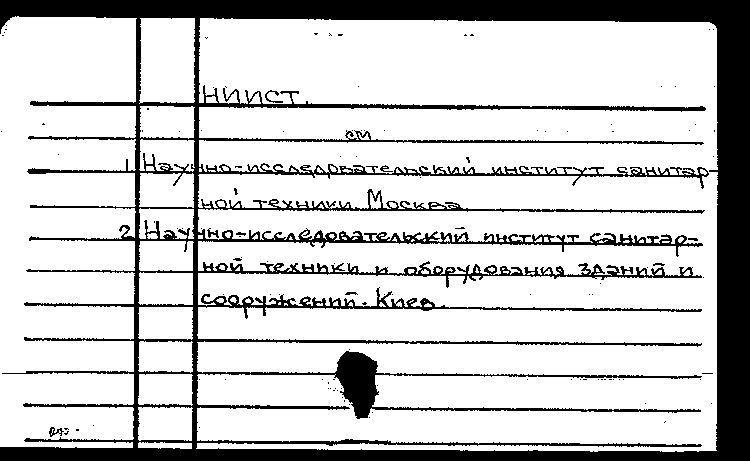 НИИСТ.
см
1. Научно-исследовательский институт санитар-
ной техники. Москва.
2. Научно-исследовательский институт санитар-
ной техники и оборудования зданий и
сооружений. Киев.